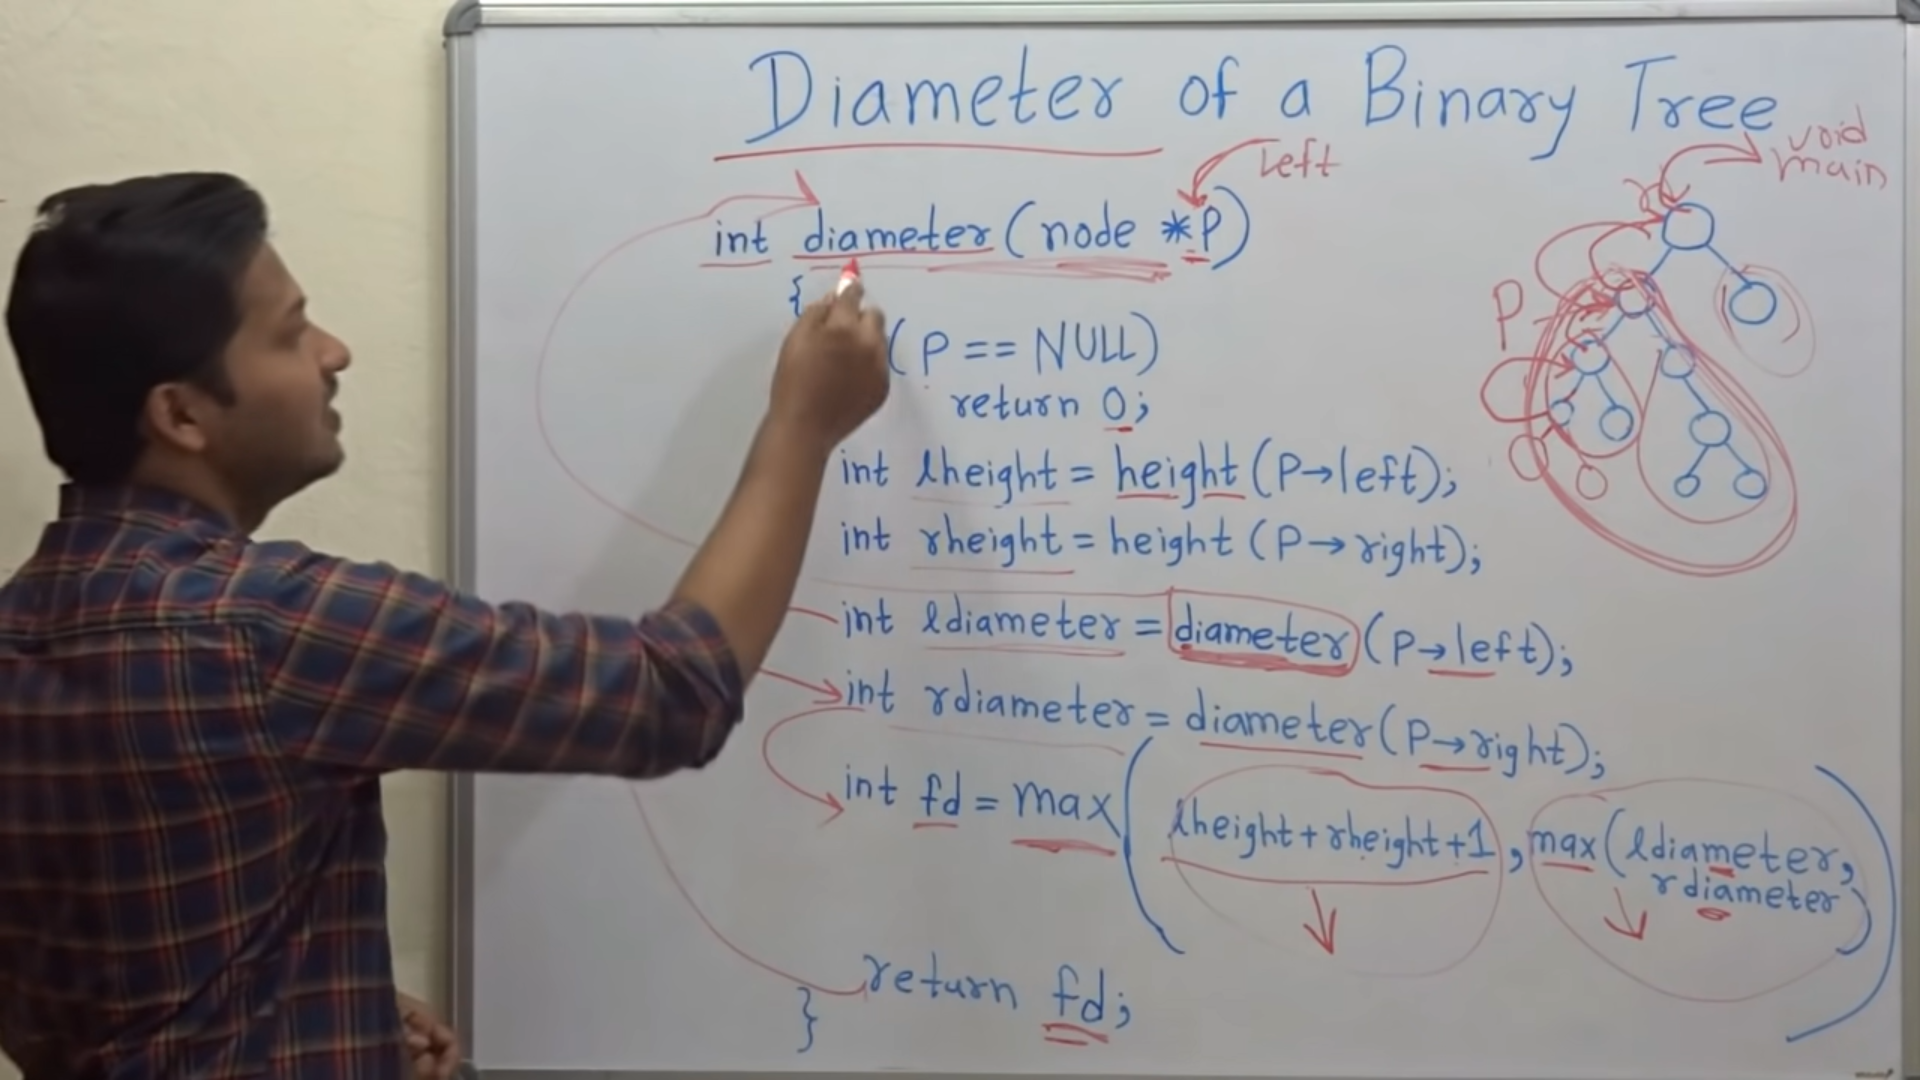 Diameter of a Binary Tree
void
main
left
int diameter(node *P)
{
(P == NULL)
return 0;
int lheight = height(P→left);
int rheight = height(P→right);
int ldiameter = diameter(P→left);
int rdiameter = diameter(P→right);
int fd = max(lheight+rheight+1, max(ldiameter,
rdiameter)
)
return fd;
}
P